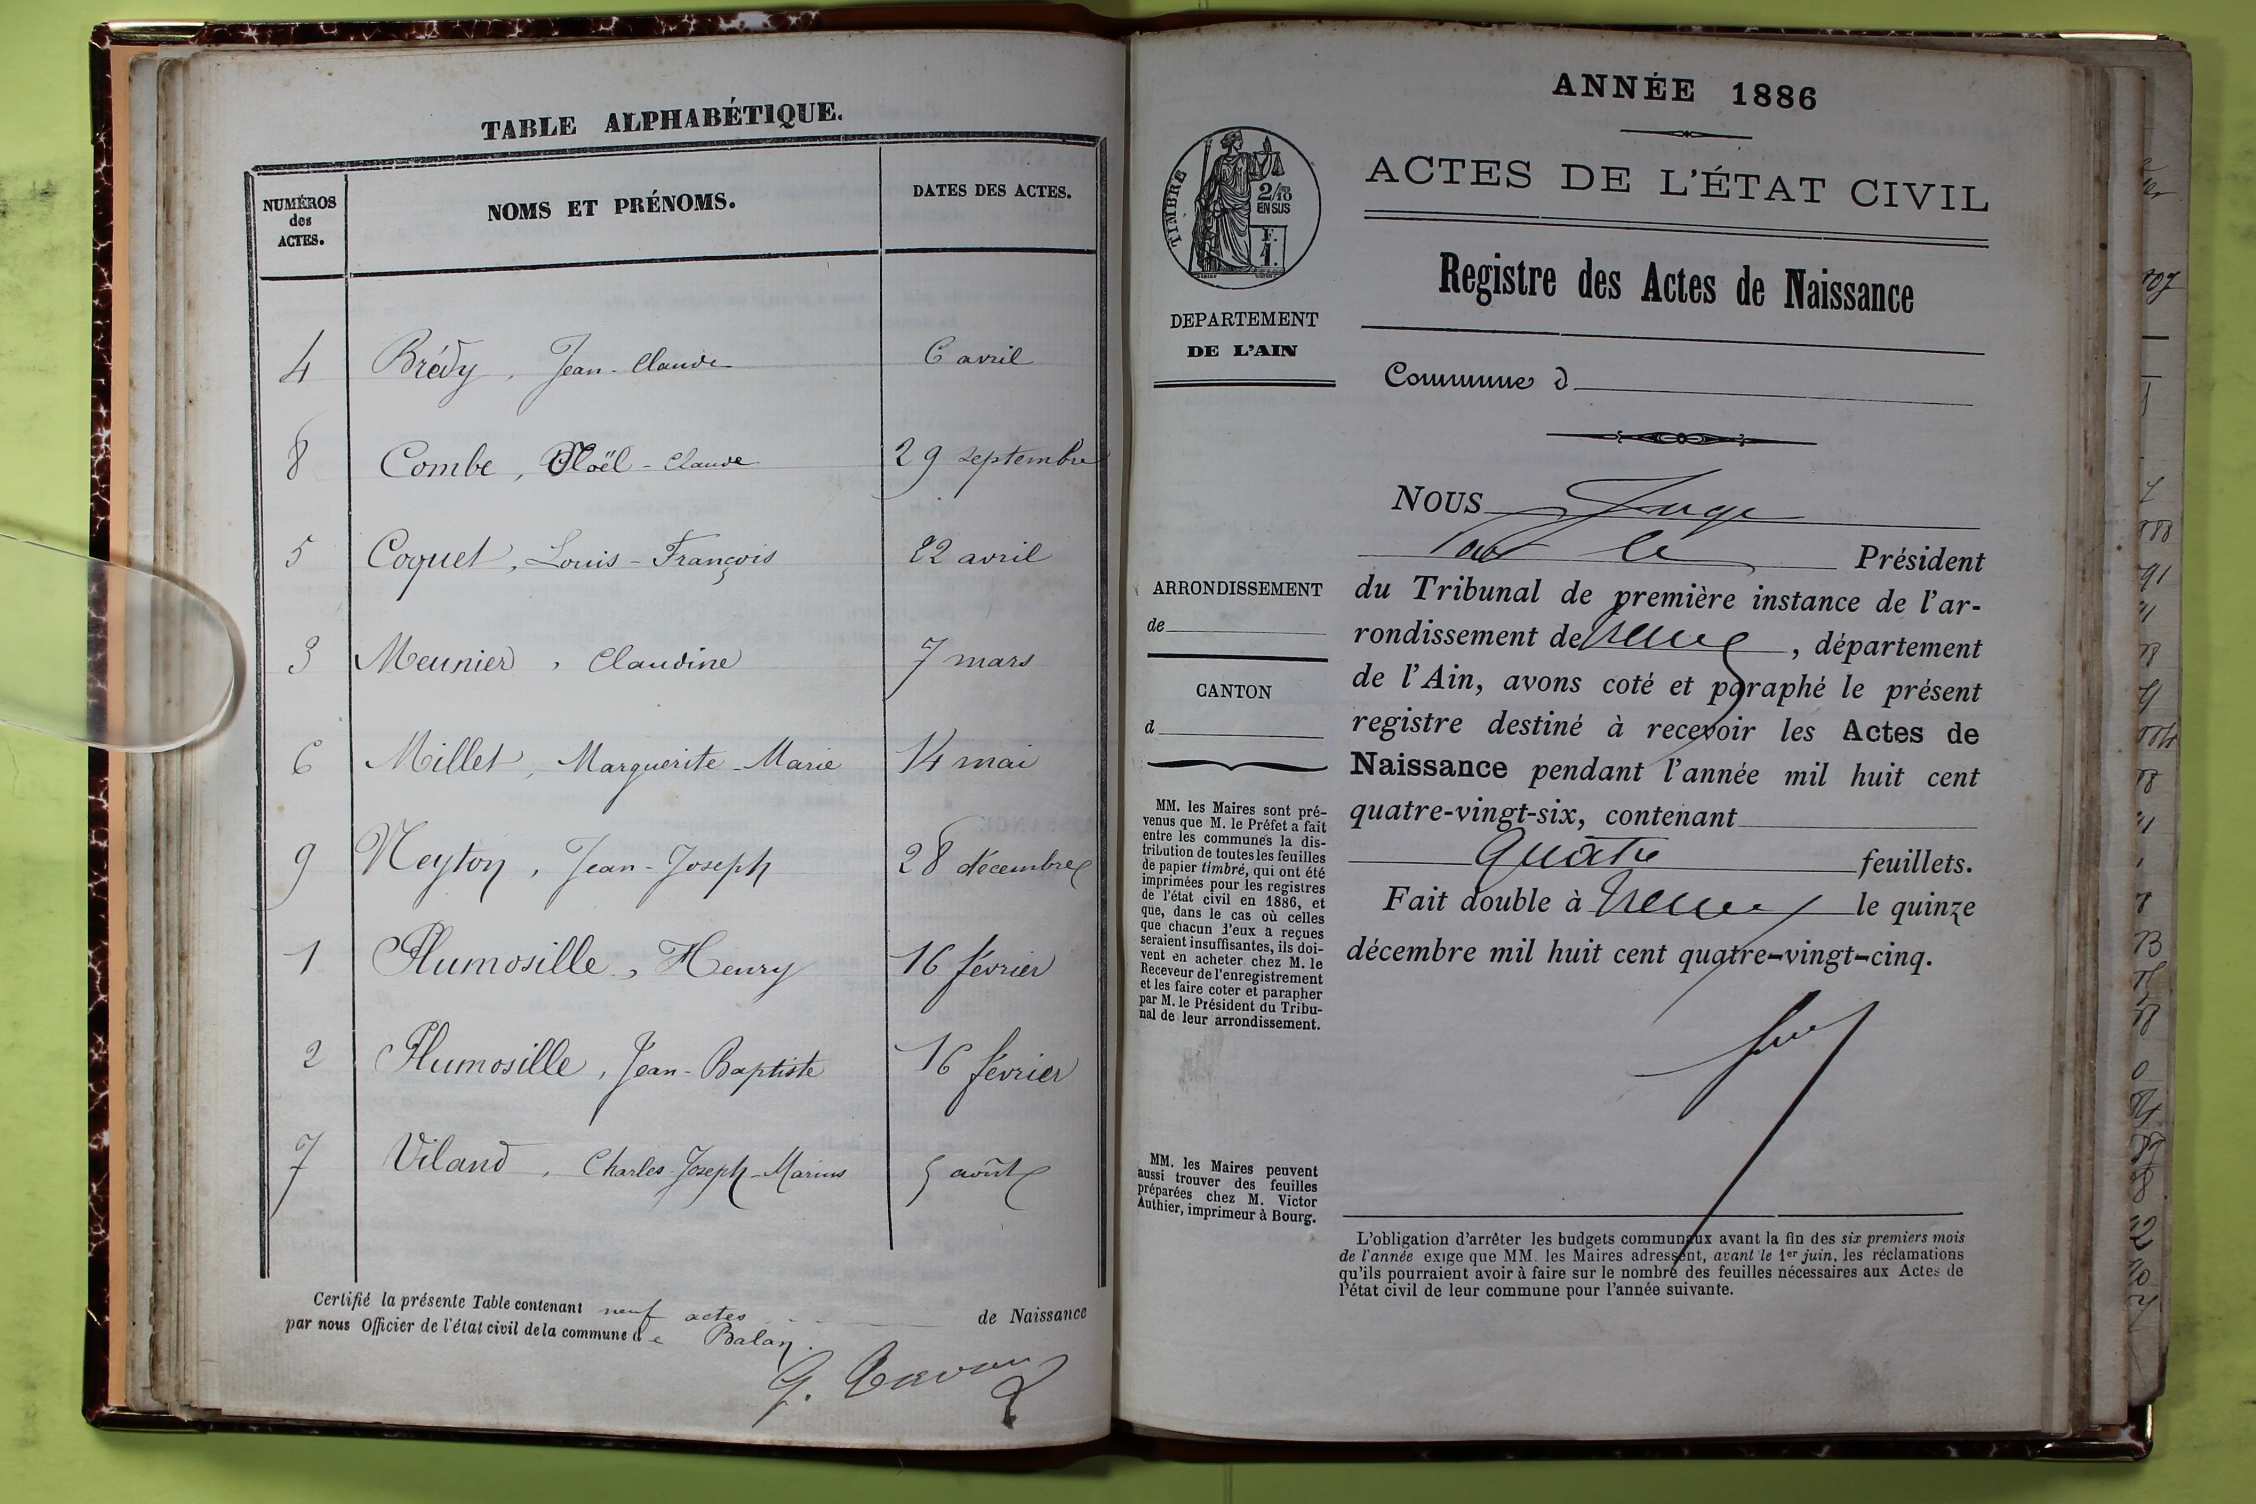 TABLE ALPHABÉTIQUE.
NUMÉROS
des
ACTES.
NOMS ET PRÉNOMS.
DATES DES ACTES.
4 Brédy, Jean-Claude 6 avril
8 Combe, Noël-Claude 29 septembre
5 Coquet, Louis-François 22 avril
3 Meunier, Claudine 7 mars
6 Millet, Marguerite-Marie 14 mai
9 Neyton, Jean-Joseph 28 décembre
1 Plumosille, Henry 16 février
2 Plumosille, Jean-Baptiste 16 février
7 Viland, Charles-Joseph-Marius 5 août
Certifié la présente Table contenant neuf actes de Naissance
par nous Officier de l'état civil de la commune de Balan.
G.
ANNÉE 1886
ACTES DE L'ÉTAT CIVIL
Registre des Actes de Naissance
Commune d
TIMBRE
2/10
EN SUS
F.
1.
DEPARTEMENT
DE L'AIN
ARRONDISSEMENT
de
CANTON
d
MM. les Maires sont pré-
venus que M. le Préfet a fait
entre les communes la dis-
tribution de toutes les feuilles
de papier timbré, qui ont été
imprimées pour les registres
de l'état civil en 1886, et
que, dans le cas où celles
que chacun d'eux a reçues
seraient insuffisantes, ils doi-
vent en acheter chez M. le
Receveur de l'enregistrement
et les faire coter et parapher
par M. le Président du Tribu-
nal de leur arrondissement.
MM. les Maires peuvent
aussi trouver des feuilles
préparées chez M. Victor
Authier, imprimeur à Bourg.
NOUS Juge
Pour le Président
du Tribunal de première instance de l'ar-
rondissement de Trévoux, département
de l'Ain, avons coté et paraphé le présent
registre destiné à recevoir les Actes de
Naissance pendant l'année mil huit cent
quatre-vingt-six, contenant
quatre feuillets.
Fait double à Trévoux le quinze
décembre mil huit cent quatre-vingt-cinq.
L'obligation d'arrêter les budgets communaux avant la fin des six premiers mois
de l'année exige que MM. les Maires adressent, avant le 1er juin, les réclamations
qu'ils pourraient avoir à faire sur le nombre des feuilles nécessaires aux Actes de
l'état civil de leur commune pour l'année suivante.